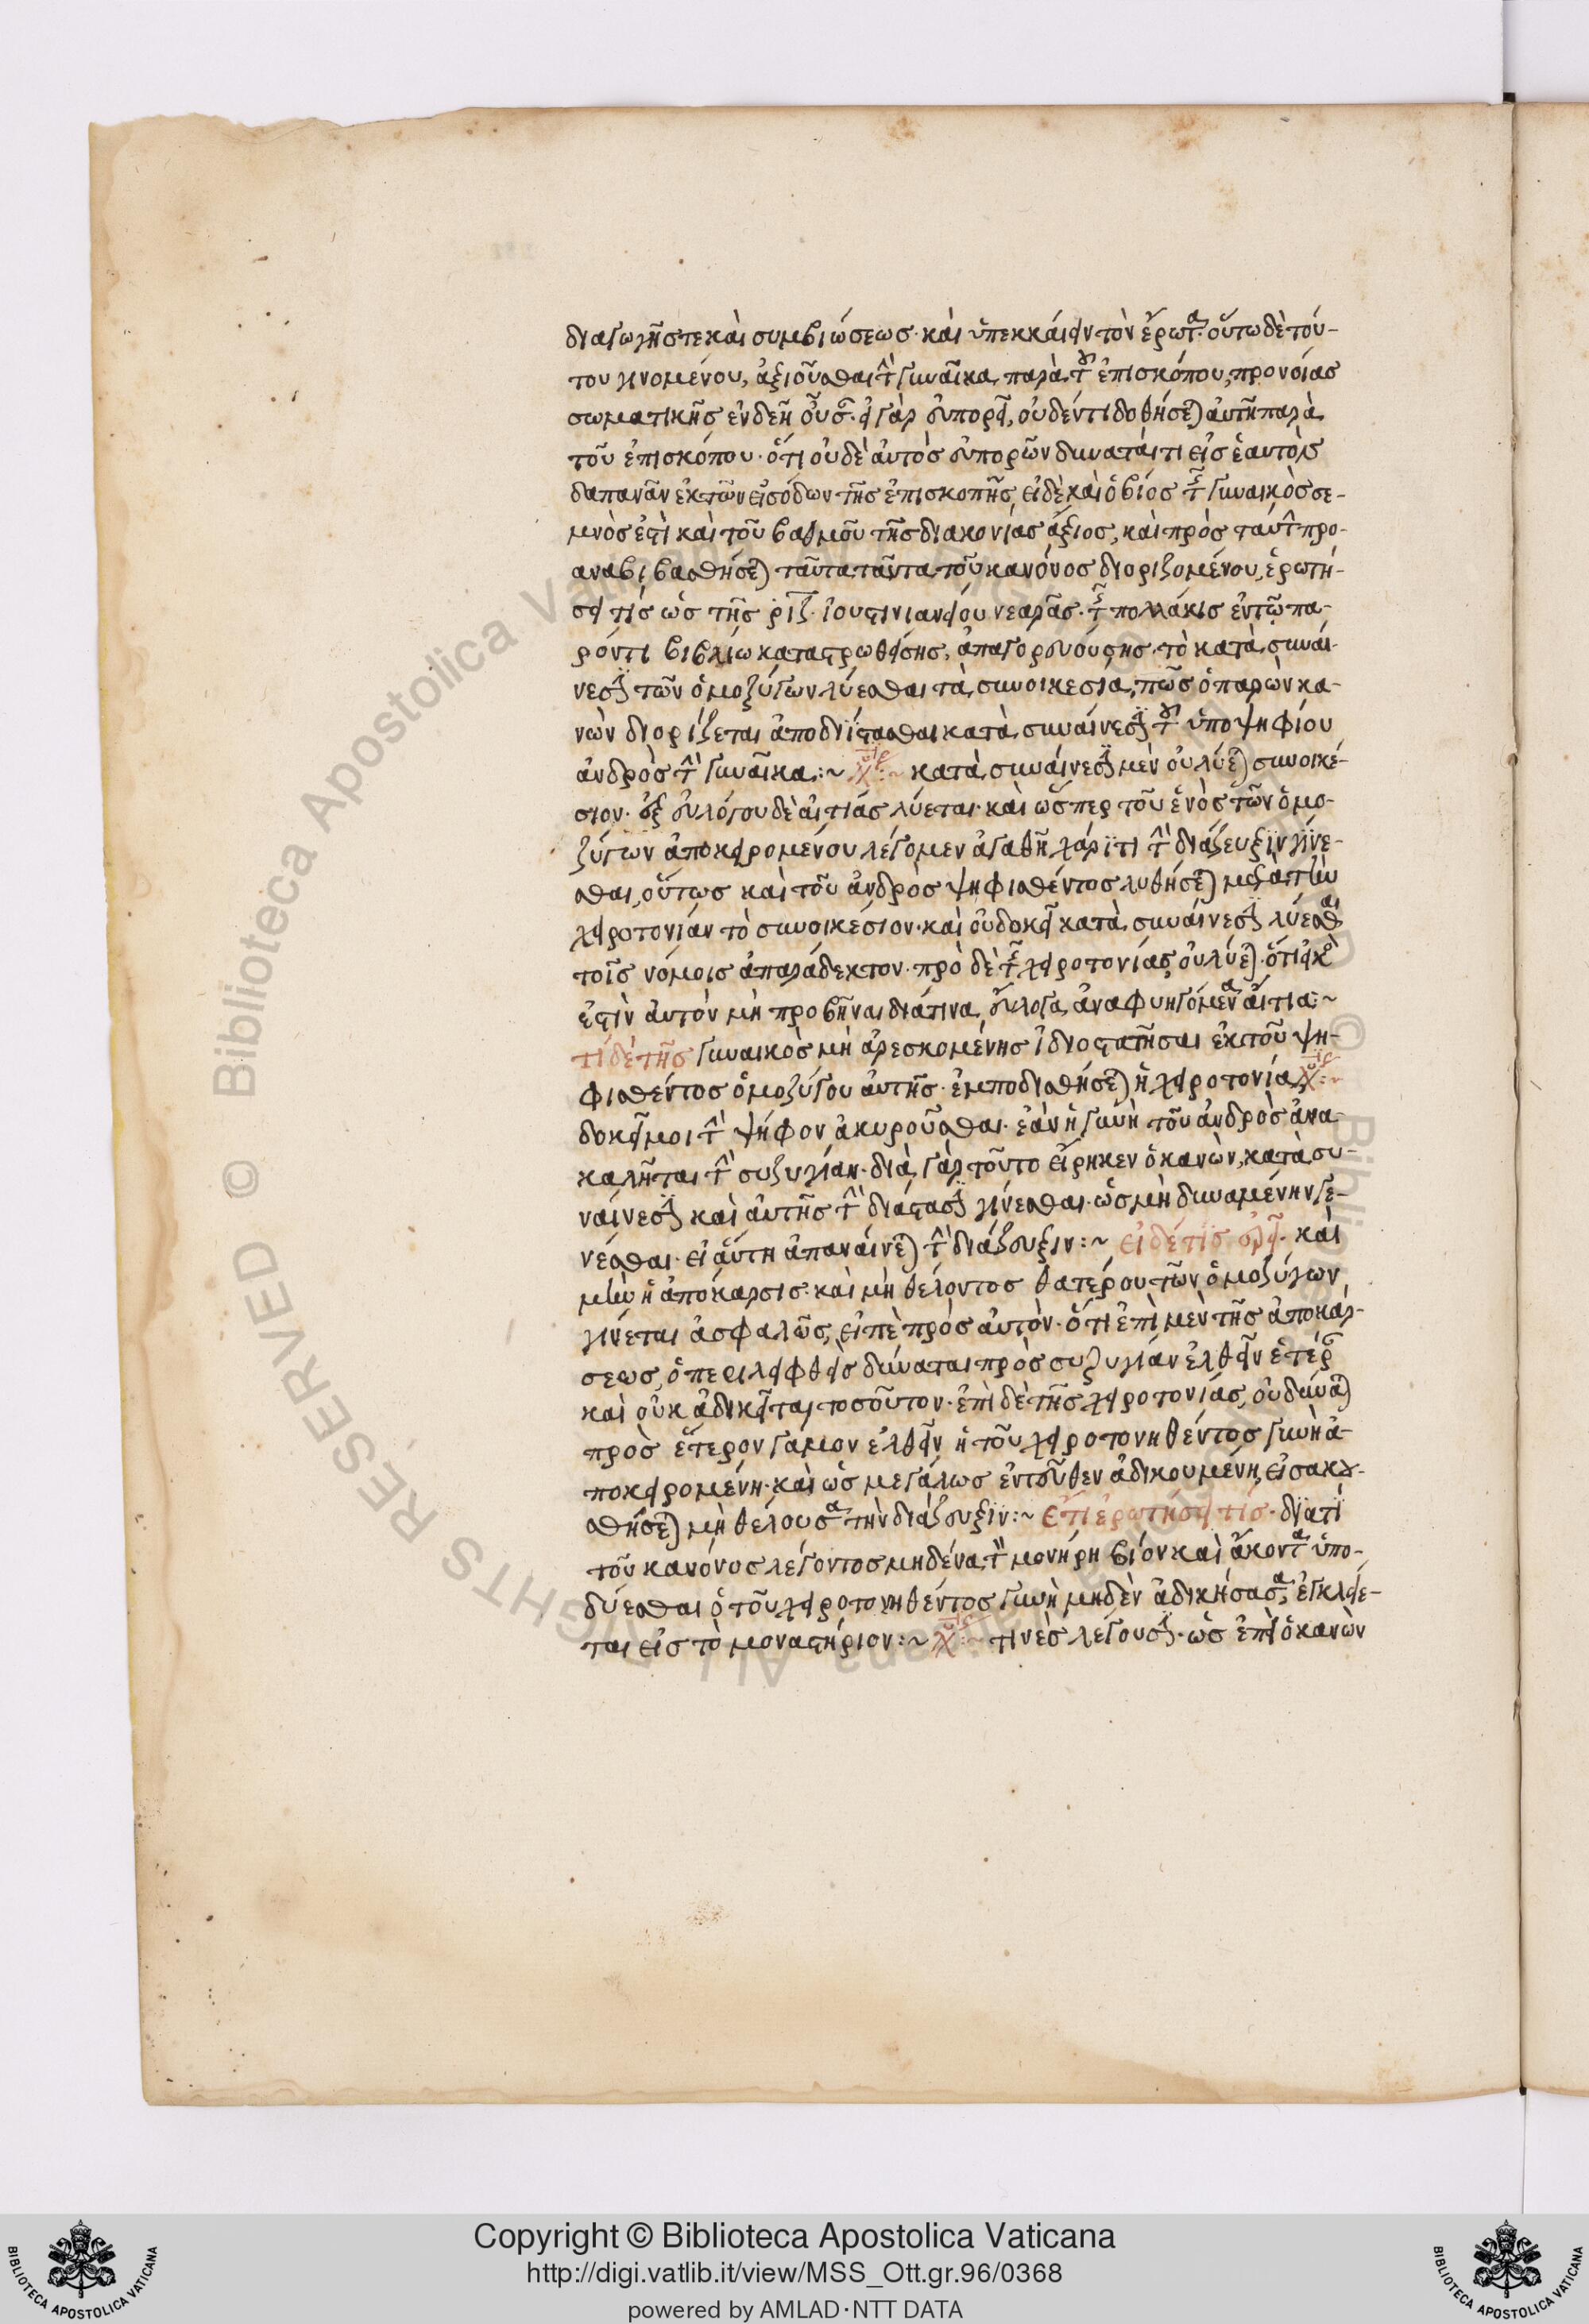 διαγωγῆς τε καὶ συμβιώσεως· καὶ ὑπεκκαίειν τὸν ἔρωτα· οὕτω δὲ τού-
του γινομένου, ἀξιοῦσθαι τὴν γυναῖκα παρὰ τοῦ ἐπισκόπου, προνοίας
σωματικῆς ἐνδεῆ οὖσαν· εἰ γὰρ εὐπορεῖ, οὐδέν τι δοθήσεται αὐτῆ παρὰ
τοῦ ἐπισκόπου· ὅτι οὐδὲ αὐτὸς εὐπορῶν δύναταί τι εἰς ἑαυτὸν
δαπανᾶν ἐκ τῶν εἰσόδων τῆς ἐπισκοπῆς, εἰ δὲ καὶ ὁ βίος τῆς γυναικὸς σε-
μνὸς ἐστὶ καὶ τοῦ βαθμοῦ τῆς διακονίας ἄξιος, καὶ πρὸς ταύτην προ-
αναβιβασθήσεται ταῦτα πάντα τοῦ κανόνος διοριζομένου, ἐρωτή-
σει τίς ὡς τῆς ριζ ἰουστινιανείου νεαρᾶς· τῆς πολλάκις ἐν τῶ πα-
ρόντι βιβλίω καταστρωθείσης, ἀπαγορευούσης· τὸ κατὰ συναί-
νεσιν τῶν ὁμοζύγων λύεσθαι τὰ συνοικεσια, πῶς ὁ παρὼν κα-
νὼν διορίζεται ἀποδιΐστασθαι κατὰ συναίνεσιν τοῦ ὑποψηφίου
ἀνδρὸς τὴν γυναῖκα :~ χ :~ κατὰ συναίνεσιν μὲν οὐ λύεται συνοικέ-
σιον· ἐξ εὐλόγου δὲ αἰτίας λύεται· καὶ ὥσπερ τοῦ ἑνὸς τῶν ὁμο-
ζύγων ἀποκειρομένου λέγομεν ἀγαθῆ χάριτι τὴν διάζευξιν γίνε-
σθαι, οὕτως καὶ τοῦ ἀνδρὸς ψηφισθέντος λυθήσεται μετὰ τὴν
χειροτονίαν τὸ συνοικέσιον· καὶ οὐ δοκεῖ κατὰ συναίνεσιν λύεσθαι
τοῖς νόμοις ἀπαράδεκτον· πρὸ δὲ τῆς χειροτονίας οὐ λύεται· ὅτι εἰκὸς
ἐστὶν αὐτὸν μὴ προβῆναι διά τινα εὔλογα ἀναφυησόμενα αἴτια :~
τί δὲ τῆς γυναικὸς μὴ ἀρεσκομένης ἰδιοστατῆσαι ἐκ τοῦ ψη-
φισθέντος ὁμοζύγου αὐτῆς· ἐμποδισθήσεται ἡ χειροτονία χ :~
δοκεῖ μοι τὴν ψῆφον ἀκυροῦσθαι· ἐὰν ἡ γυνὴ τοῦ ἀνδρὸς ἀνα-
καλῆται τὴν συζυγίαν· διὰ γὰρ τοῦτο εἴρηκεν ὁ κανὼν, κατὰ συ-
ναίνεσιν καὶ αὐτῆς τὴν διάστασιν γίνεσθαι· ὡς μὴ δυναμένην γε-
νέσθαι· εἰ αὕτη ἀπαναίνεται τὴν διάζευξιν :~ εἰ δέ τις ἐρεῖ· καὶ
μὴν ἡ ἀπόκαρσις· καὶ μὴ θέλοντος θατέρου τῶν ὁμοζύγων
γίνεται ἀσφαλῶς, εἰπὲ πρὸς αὐτὸν· ὅτι ἐπὶ μὲν τῆς ἀποκάρ-
σεως, ὁ περιλειφθεὶς δύναται πρὸς συζυγίαν ἐλθεῖν ἑτέραν
καὶ οὐκ ἀδικεῖται τοσοῦτον· ἐπὶ δὲ τῆς χειροτονίας, οὐ δύναται
πρὸς ἕτερον γάμον ἐλθεῖν ἡ τοῦ χειροτονηθέντος γυνὴ ἀ-
ποκειρομένη· καὶ ὡς μεγάλως ἐντεῦθεν ἀδικουμένη, εἰσακου-
σθήσεται μὴ θέλουσα τὴν διάζευξιν :~ ἔτι ἐρωτήσει τίς· διατί
τοῦ κανόνος λέγοντος μηδένα τὸν μονήρη βίον καὶ ἄκοντα ὑπο-
δύεσθαι ὁ τοῦ χειροτονηθέντος γυνὴ μηδὲν ἀδικήσασα, ἐγκλείε-
ται εἰς τὸ μοναστήριον :~ χ :~ τινὲς λέγουσιν· ὡς ἐπεὶ ὁ κανὼν
Copyright © Biblioteca Apostolica Vaticana
http://digi.vatlib.it/view/MSS_Ott.gr.96/0368
powered by AMLAD·NTT DATA